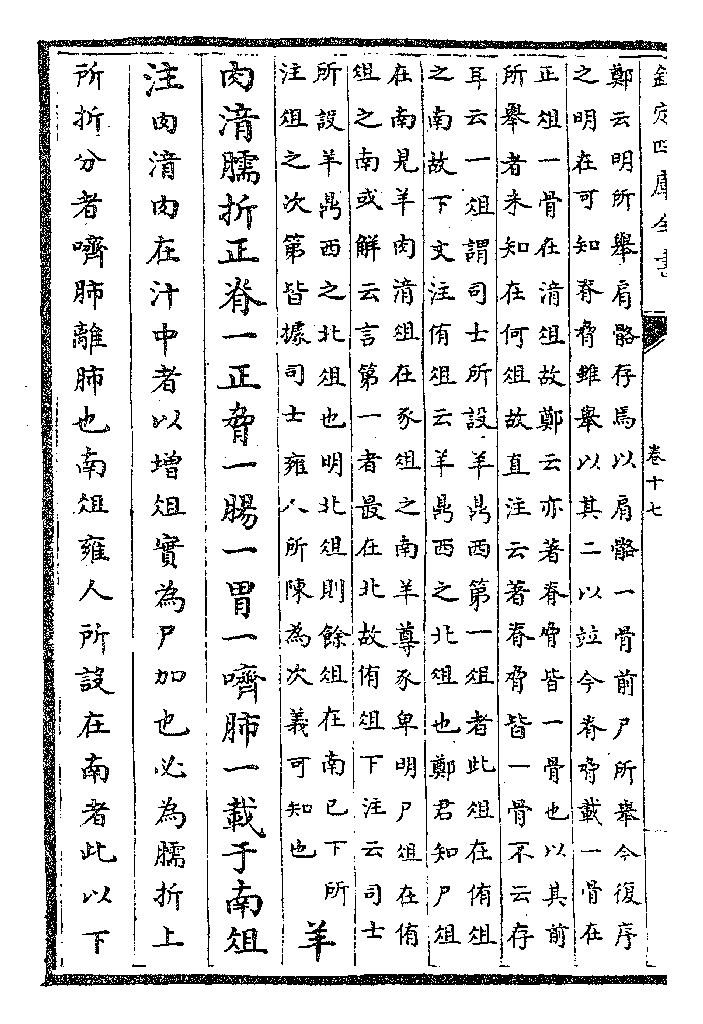 欽定四庫全書
卷十七
鄭云明所舉肩骼存焉以肩骼一骨前尸所舉今復序
之明在可知脊脅雖舉以其二以竝今脊脅載一骨在
正俎一骨在湆俎故鄭云亦著脊脅皆一骨也以其前
所舉者未知在何俎故直注云著脊脅皆一骨不云存
耳云一俎謂司士所設羊鼎西第一俎者此俎在侑俎
之南故下文注侑俎云羊鼎西之北俎也鄭君知尸俎
在南見羊肉湆俎在豕俎之南羊尊豕卑明尸俎在侑
俎之南或解云言第一者最在北故侑俎下注云司士
所設羊鼎西之北俎也明北俎則餘俎在南已下所
注俎之次第皆據司士雍人所陳為次義可知也
羊
肉湆臑折正脊一正脅一腸一胃一嚌肺一載于南俎
注肉湆肉在汁中者以增俎實為尸加也必為臑折上
所折分者嚌肺離肺也南俎雍人所設在南者此以下